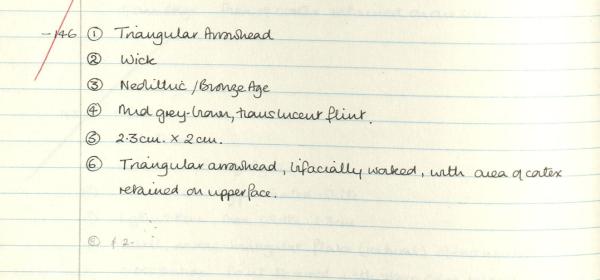 -146 ① Triangular Arrowhead
② Wick
③ Neolithic / Bronze Age
④ Mid grey-brown, translucent flint.
⑤ 2.3cm. x 2cm.
⑥ Triangular arrowhead, bifacially worked, with area of cortex
retained on upperface.